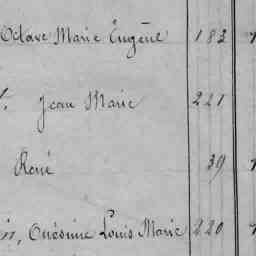 Octave Marie Eugène 183
Jean Marie 221
René 39
Onésime Louis Marie 220